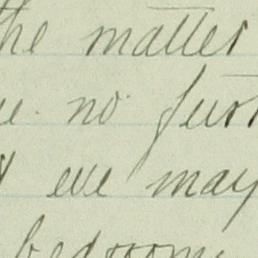 the matter
no furt
eve may
bedroom